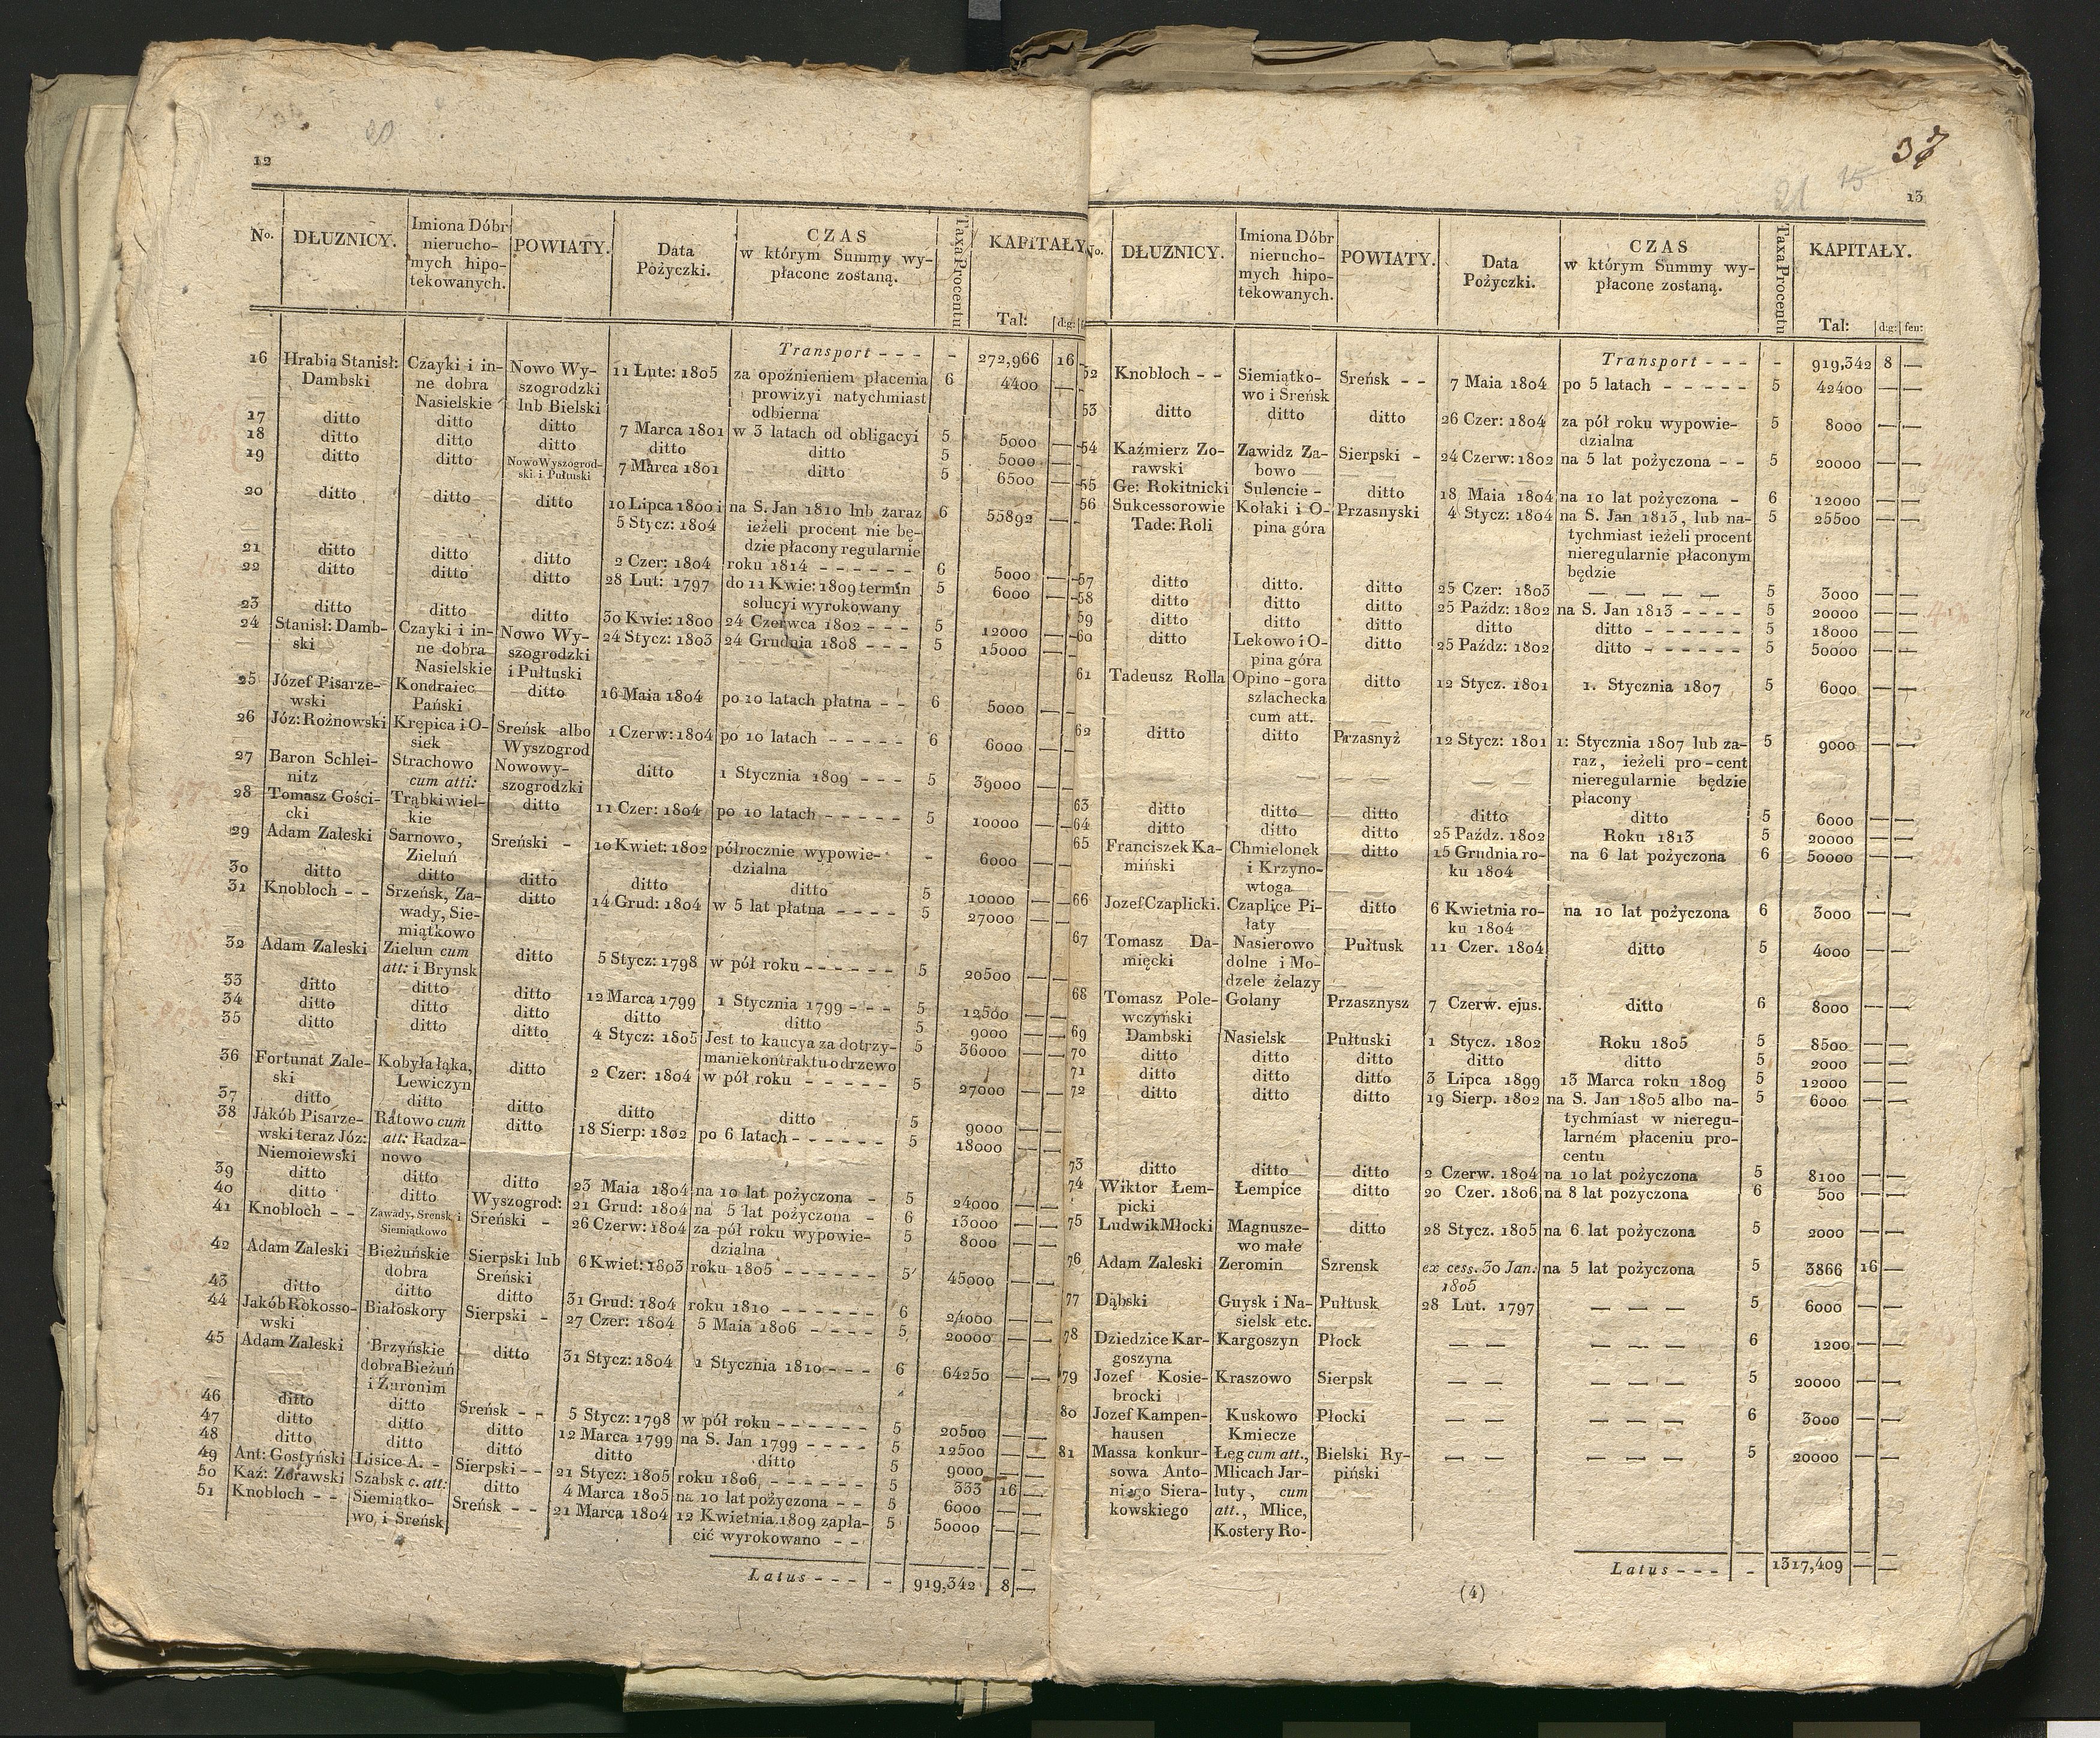 20
12
No. DŁUZNICY. Imiona Dóbr nierucho- mych hipo- tekowanych. POWIATY. Data Pożyczki. CZAS w którym Summy wy- płacone zostaną. Taxa Procentu KAPITAŁY
Tal: d:g:
Transport - - - - 272,966 16
16 Hrabia Stanisł: Czayki i in- Nowo Wy- 11 Lute: 1805 za opoźnieniem płacenia 6 4400 —
Dambski ne dobra szogrodzki prowizyi natychmiast
Nasielskie lub Bielski odbierna
17 ditto ditto ditto 7 Marca 1801 w 3 latach od obligacyi 5 5000 —
18 ditto ditto ditto ditto ditto 5 5000 —
19 ditto ditto Nowo Wyszogrod- 7 Marca 1801 ditto 5 6500 —
ski i Pułtuski
20 ditto ditto ditto 10 Lipca 1800 i na S. Jan 1810 lnb zaraz 6 55892 —
5 Stycz: 1804 ieżeli procent nie bę-
dzie płacony regularnie
21 ditto ditto ditto 2 Czer: 1804 roku 1814 - - - - - - 6 5000 —
22 ditto ditto ditto 28 Lut: 1797 do 11 Kwie: 1809 termin 5 6000 —
solucyi wyrokowany
23 ditto ditto ditto 30 Kwie: 1800 24 Czerwca 1802 - - - 5 12000 —
24 Stanisł: Damb- Czayki i in- Nowo Wy- 24 Stycz: 1803 24 Grudnia 1808 - - - 5 15000 —
ski ne dobra szogrodzki
Nasielskie i Pułtuski
25 Józef Pisarze- Kondraiec ditto 16 Maia 1804 po 10 latach płatna - - 6 5000 —
wski Pański
26 Józ: Rożnowski Krępica i O- Sreńsk albo 1 Czerw: 1804 po 10 latach - - - - - 6 6000 —
siek Wyszogrod
27 Baron Schlei- Strachowo Nowowy- ditto 1 Stycznia 1809 - - - 5 39000 —
nitz cum atti: szogrodzki
28 Tomasz Gości- Trąbki wiel- ditto 11 Czer: 1804 po 10 latach - - - - - 5 10000 —
cki kie
29 Adam Zaleski Sarnowo, Sreński - 10 Kwiet: 1802 półrocznie wypowie- - 6000 —
Zieluń dzialna
30 ditto ditto ditto ditto ditto 5 10000 —
31 Knobloch - - Srzeńsk, Za- ditto 14 Grud: 1804 w 5 lat płatna - - - - 5 27000 —
wady, Sie-
miątkowo
32 Adam Zaleski Zielun cum ditto 5 Stycz: 1798 w pół roku - - - - - - 5 20500 —
att: i Brynsk
33 ditto ditto ditto 12 Marca 1799 1 Stycznia 1799 - - - 5 12500 —
34 ditto ditto ditto ditto ditto 5 9000 —
35 ditto ditto ditto 4 Stycz: 1805 Jest to kaucya za dotrzy- 5 36000 —
manie kontraktu o drzewo
36 Fortunat Zale- Kobyła łąka, ditto 2 Czer: 1804 w pół roku - - - - - 5 27000 —
ski Lewiczyn
37 ditto ditto ditto ditto ditto 5 9000 —
38 Jakób Pisarze- Ratowo cum ditto 18 Sierp: 1802 po 6 latach - - - - - - 5 18000 —
wski teraz Józ: att: Radza-
Niemoiewski nowo
39 ditto ditto ditto 23 Maia 1804 na 10 lat pożyczona - 5 24000 —
40 ditto ditto Wyszogrod: 21 Grud: 1804 na 5 lat pożyczona - 6 13000 —
41 Knobloch - - Zawady, Sreńsk i Sreński - 26 Czerw: 1804 za pół roku wypowie- 5 8000 —
Siemiątkowo dzialna
42 Adam Zaleski Bieżuńskie Sierpski lub 6 Kwiet: 1803 roku 1805 - - - - - - 5 45000 —
dobra Sreński
43 ditto ditto ditto 31 Grud: 1804 roku 1810 - - - - - - 6 24000 —
44 Jakób Rokosso- Białoskory Sierpski - 27 Czer: 1804 5 Maia 1806 - - - - 5 20000 —
wski
45 Adam Zaleski Brzyńskie ditto 31 Stycz: 1804 1 Stycznia 1810 - - - 6 64250 —
dobra Bieżuń
i Żuronim
46 ditto ditto Sreńsk - - 5 Stycz: 1798 w pół roku - - - - - - 5 20500 —
47 ditto ditto ditto 12 Marca 1799 na S. Jan 1799 - - - - 5 12500 —
48 ditto ditto ditto ditto ditto 5 9000 —
49 Ant: Gostyński Lisice A. - Sierpski - - 21 Stycz: 1805 roku 1806, - - - - - - 5 333 16 —
50 Kaź: Zórawski Szabsk c. att: ditto 4 Marca 1805 na 10 lat pożyczona - - 5 6000 —
51 Knobloch - - Siemiątko- Sreńsk - - 21 Marca 1804 12 Kwietnia 1809 zapła- 5 50000 —
wo, i Sreńsk cić wyrokowano - -
Latus - - - - 919,342 8 —
37
21 15
13
No. DŁUZNICY. Imiona Dóbr nierucho- mych hipo- tekowanych. POWIATY. Data Pożyczki. CZAS w którym Summy wy- płacone zostaną. Taxa Procentu KAPITAŁY.
Tal: d:g: fen:
Transport - - - - 919,342 8 —
52 Knobloch - - Siemiątko- Sreńsk - - 7 Maia 1804 po 5 latach - - - - - 5 42400 — —
wo i Sreńsk
53 ditto ditto ditto 26 Czer: 1804 za pół roku wypowie- 5 8000 — —
dzialna
54 Kaźmierz Zo- Zawidz Za- Sierpski - 24 Czerw: 1802 na 5 lat pożyczona - - 5 20000 — —
rawski bowo
55 Ge: Rokitnicki Sulencie - ditto 18 Maia 1804 na 10 lat pożyczona - 6 12000 — —
56 Sukcessorowie Kołaki i O- Przasnyski 4 Stycz: 1804 na S. Jan 1813, lub na- 5 25500 — —
Tade: Roli pina góra tychmiast ieżeli procent
nieregularnie płaconym
będzie
57 ditto ditto. ditto 25 Czer: 1803 — — — — 5 3000 — —
58 ditto ditto ditto 25 Paźdz: 1802 na S. Jan 1813 - - - - 5 20000 — —
59 ditto ditto ditto ditto ditto - - - - - - 5 18000 — —
60 ditto Lekowo i O- ditto 25 Paźdz: 1802 ditto - - - - - - 5 50000 — —
pina góra
61 Tadeusz Rolla Opino-gora ditto 12 Stycz. 1801 1. Stycznia 1807 5 6000 — —
szlachecka
cum att.
62 ditto ditto Przasnyż 12 Stycz: 1801 1: Stycznia 1807 lub za- 5 9000 — —
raz, ieżeli pro-cent
nieregularnie będzie
płacony
63 ditto ditto ditto ditto ditto 5 6000 — —
64 ditto ditto ditto 25 Paźdz. 1802 Roku 1813 5 20000 — —
65 Franciszek Ka- Chmielonek ditto 15 Grudnia ro- na 6 lat pożyczona 6 50000 — —
miński i Krzyno- ku 1804
wtoga
66 Jozef Czaplicki. Czaplice Pi- ditto 6 Kwietnia ro- na 10 lat pożyczona 6 3000 — —
łaty ku 1804
67 Tomasz Da- Nasierowo Pułtusk 11 Czer. 1804 ditto 5 4000 — —
mięcki dolne i Mo-
dzele żelazy
68 Tomasz Pole- Golany Przasznysz 7 Czerw. ejus. ditto 6 8000 — —
wczyński
69 Dambski Nasielsk Pułtuski 1 Stycz. 1802 Roku 1805 5 8500 — —
70 ditto ditto ditto ditto ditto 5 2000 — —
71 ditto ditto ditto 3 Lipca 1899 13 Marca roku 1809 5 12000 — —
72 ditto ditto ditto 19 Sierp. 1802 na S. Jan 1805 albo na- 5 6000 — —
tychmiast w nieregu-
larném płaceniu pro-
centu
73 ditto ditto ditto 2 Czerw. 1804 na 10 lat pożyczona 5 8100 — —
74 Wiktor Łem- Łempice ditto 20 Czer. 1806 na 8 lat pozyczona 6 500 — —
picki
75 Ludwik Młocki Magnusze- ditto 28 Stycz. 1805 na 6 lat pożyczona 5 2000 — —
wo małe
76 Adam Zaleski Zeromin Szrensk ex cess. 30 Jan: na 5 lat pożyczona 5 3866 16 —
1805
77 Dąbski Guysk i Na- Pułtusk 28 Lut. 1797 — — — 5 6000 — —
sielsk etc.
78 Dziedzice Kar- Kargoszyn Płock — — — — — 6 1200 — —
goszyna
79 Jozef Kosie- Kraszowo Sierpsk — — — — — 5 20000 — —
brocki
80 Jozef Kampen- Kuskowo Płocki — — — — — 6 3000 — —
hausen Kmiecze
81 Massa konkur- Łęg cum att., Bielski Ry- — — — — — 5 20000 — —
sowa Anto- Mlicach Jar- piński
niego Siera- luty, cum
kowskiego att., Mlice,
Kostery Ro-
Latus - - - - 1317,409 — —
(4)